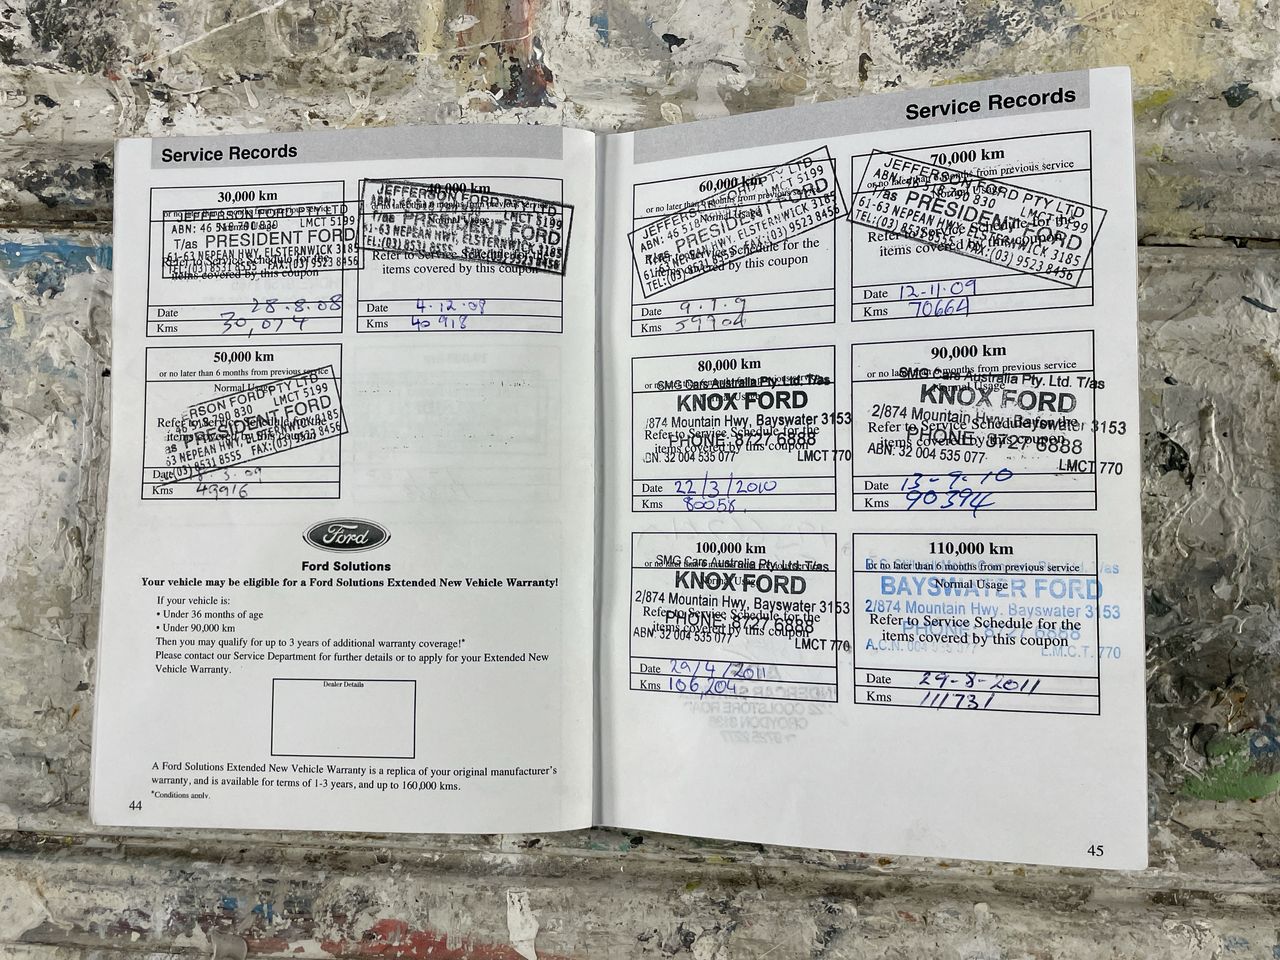 Service Records
30,000 km
JEFFERSON FORD PTY LTD
ABN: 46 518 790 830 LMCT 5199
T/as PRESIDENT FORD
61-63 NEPEAN HWY, ELSTERNWICK 3185
TEL:(03) 8531 8555 FAX:(03) 9523 8456
items covered by this coupon
Date 28.8.08
Kms 30,074
40,000 km
JEFFERSON FORD PTY LTD
LMCT 5199
T/as PRESIDENT FORD
61-63 NEPEAN HWY, ELSTERNWICK 3185
TEL:(03) 8531 8555 9523 8456
Refer to Service Schedule for the
items covered by this coupon
Date 4.12.08
Kms 40918
50,000 km
or no later than 6 months from previous service
Normal Usage
ERSON FORD PTY LTD
46 518 790 830 LMCT 5199
as PRESIDENT FORD
63 NEPEAN HWY, ELSTERNWICK 3185
(03) 8531 8555 FAX:(03) 9523 8456
Date
Kms 49916
Ford
Ford Solutions
Your vehicle may be eligible for a Ford Solutions Extended New Vehicle Warranty!
If your vehicle is:
• Under 36 months of age
• Under 90,000 km
Then you may qualify for up to 3 years of additional warranty coverage!*
Please contact our Service Department for further details or to apply for your Extended New
Vehicle Warranty.
Dealer Details
A Ford Solutions Extended New Vehicle Warranty is a replica of your original manufacturer's
warranty, and is available for terms of 1-3 years, and up to 160,000 kms.
*Conditions apply.
44
Service Records
60,000 km
JEFFERSON FORD PTY LTD
ABN: 46 518 LMCT 5199
PRESIDENT FORD
61-63 NEPEAN HWY, ELSTERNWICK 3185
TEL:(03) 8531 9523 8456
Schedule for the
items covered by this coupon
Date 9.7.9
Kms 59704
70,000 km
or no later than 6 months from previous service
JEFFERSON FORD PTY LTD
ABN: 46 518 790 830 LMCT 5199
T/as PRESIDENT FORD
61-63 NEPEAN HWY, ELSTERNWICK 3185
TEL:(03) 8531 8555 FAX:(03) 9523 8456
Refer to Service Schedule for the
items covered by this coupon
Date 12-11-09
Kms 70664
80,000 km
SMG Cars Australia Pty. Ltd. T/as
KNOX FORD
/874 Mountain Hwy, Bayswater 3153
Refer to Service Schedule for the
PHONE: 8727 6888
items covered by this coupon
BN. 32 004 535 077
LMCT 770
Date 22/3/2010
Kms 80058
90,000 km
or no later than 6 months from previous service
SMG Cars Australia Pty. Ltd. T/as
Normal Usage
KNOX FORD
2/874 Mountain Hwy, Bayswater 3153
Refer to Service Schedule for the
PHONE: 8727 6888
items covered by this coupon
ABN. 32 004 535 077
LMCT 770
Date 13-9-10
Kms 90394
100,000 km
SMG Cars Australia Pty. Ltd. T/as
KNOX FORD
2/874 Mountain Hwy, Bayswater 3153
Refer to Service Schedule for the
PHONE: 8727 6888
items covered by this coupon
ABN. 32 004 535 077
LMCT 770
Date 29/4/2011
Kms 106,204
110,000 km
or no later than 6 months from previous service
Normal Usage
BAYSWATER FORD
2/874 Mountain Hwy. Bayswater 3153
Refer to Service Schedule for the
PHONE: 8727 6888
items covered by this coupon
A.C.N. 004 535 077
L.M.C.T. 770
Date 29-8-2011
Kms 111731
45